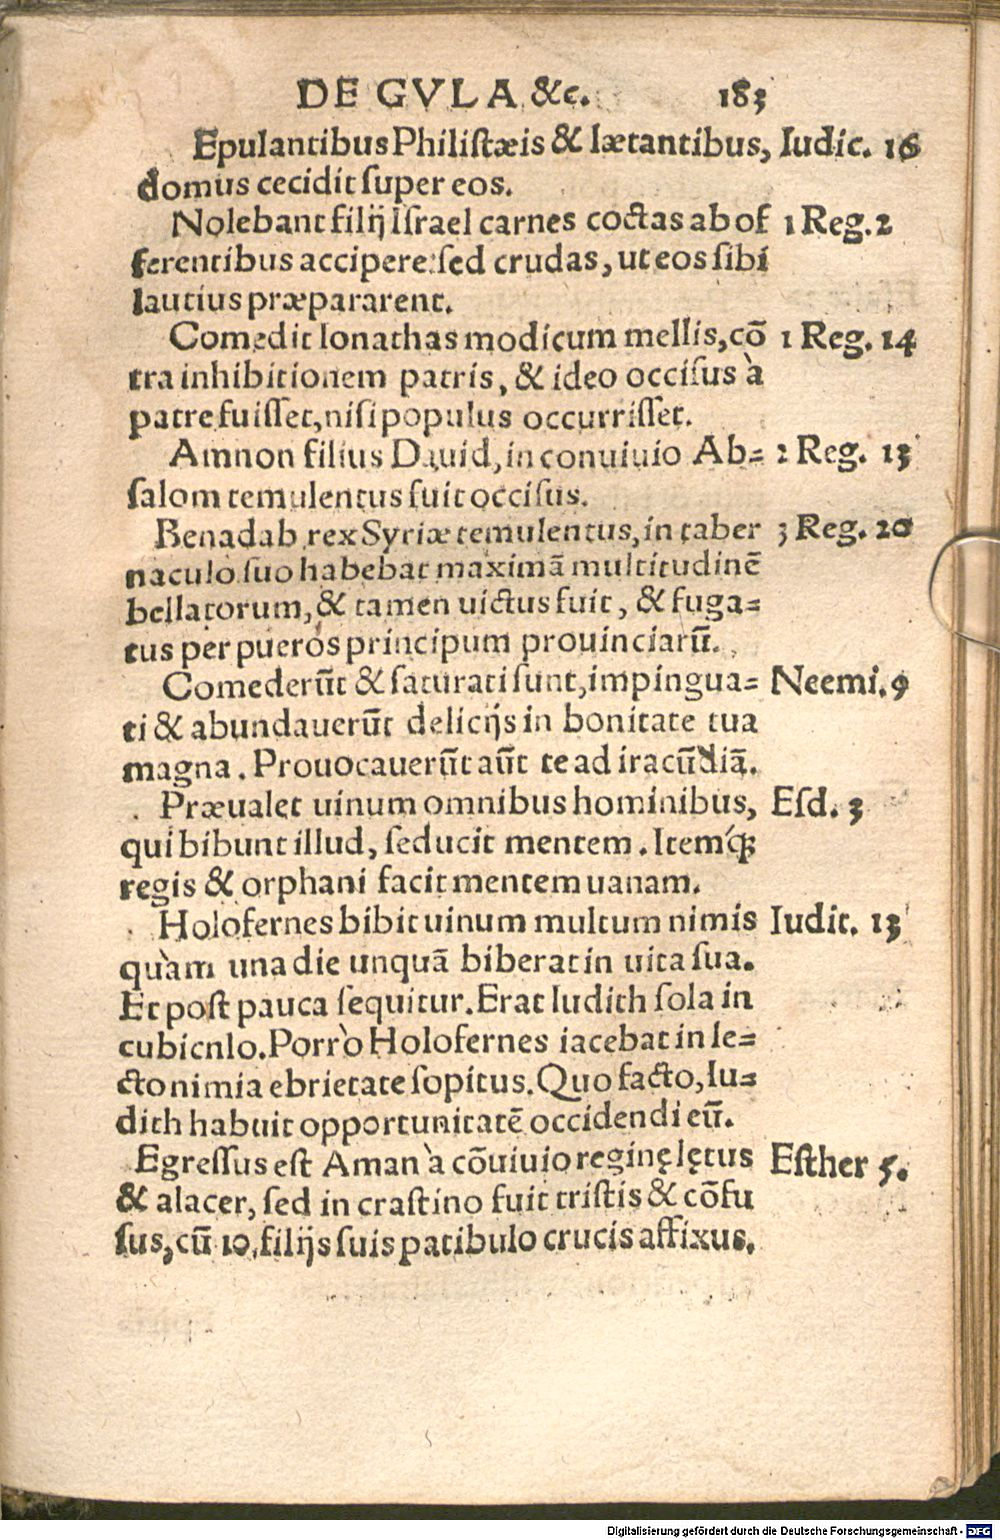 DE GVLA &c. 183
Epulantibus Philiſtæis & lætantibus, Iudic. 16
domus cecidit ſuper eos.
Nolebant filĳ Iſrael carnes coctas ab of 1 Reg. 2
ferentibus accipere: ſed crudas, ut eos ſibi
lautius præpararent.
Comedit Ionathas modicum mellis, cõ 1 Reg. 14
tra inhibitionem patris, & ideo occiſus à
patre fuiſſet, niſi populus occurriſſet.
Amnon filius Dauid, in conuiuio Ab= 2 Reg. 13
ſalom temulentus fuit occiſus.
Benadab rex Syriæ temulentus, in taber 3 Reg. 20
naculo ſuo habebat maximã multitudinẽ
bellatorum, & tamen uictus fuit, & fuga=
tus per pueros principum prouinciarũ.
Comederũt & ſaturati ſunt, impingua= Neemi. 9
ti & abundauerũt delicĳs in bonitate tua
magna. Prouocauerũt aũt te ad iracũdiã.
Præualet uinum omnibus hominibus, Eſd. 3
qui bibunt illud, ſeducit mentem. Itemq́;
regis & orphani facit mentem uanam.
Holofernes bibit uinum multum nimis Iudit. 13
quàm una die unquã biberat in uita ſua.
Et poſt pauca ſequitur. Erat Iudith ſola in
cubicnlo. Porrò Holofernes iacebat in le=
cto nimia ebrietate ſopitus. Quo facto, Iu=
dith habuit opportunitatẽ occidendi eũ.
Egreſſus eſt Aman à cõuiuio reginę lętus Eſther 5.
& alacer, ſed in craſtino fuit triſtis & cõfu
ſus, cũ 10. filĳs ſuis patibulo crucis affixus.
Digitalisierung gefördert durch die Deutsche Forschungsgemeinschaft - DFG